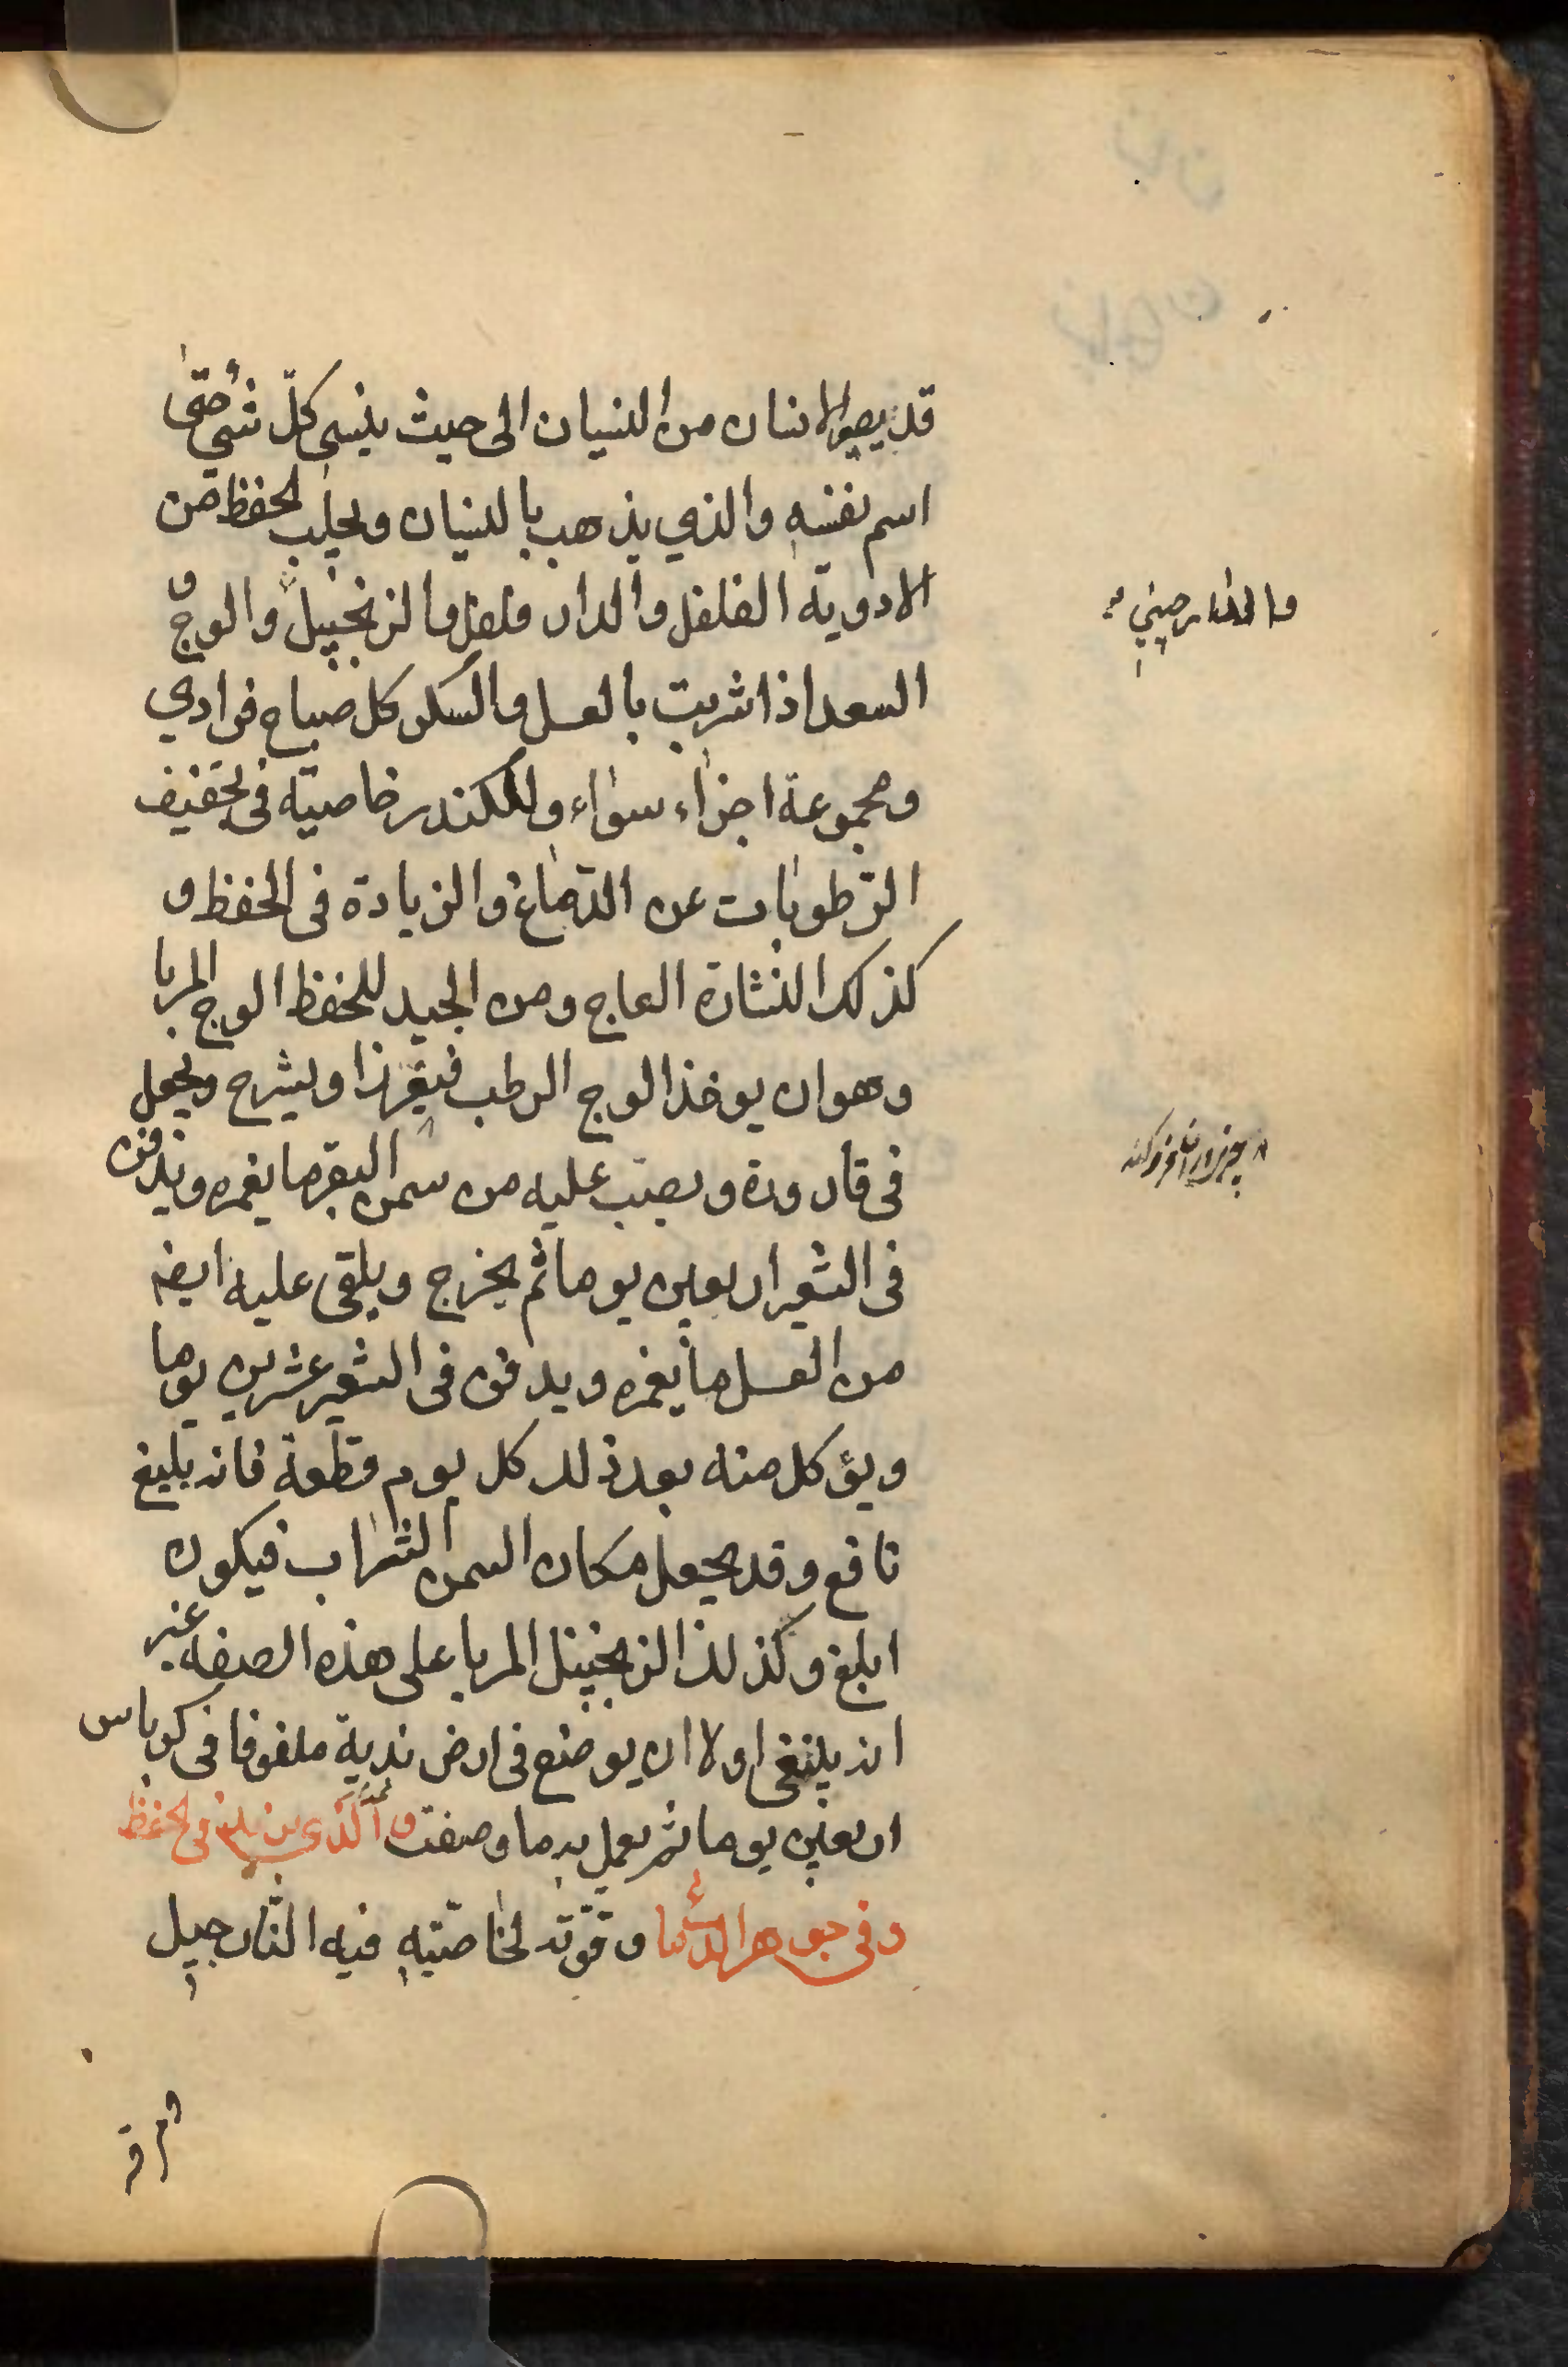 قد يصير الانسان من النسيان الى حيث ينسى كلّ شئ حتّى
اسم نفسه والذي يذهب بالنسيان ويجلب الحفظ من
الادوية الفلفل والدار فلفل والزنجبيل والوج و
والدار صيني
السعد اذا شربت بالعسل والسكر كل صباح فرادي
ومجموعة اجزاء سواء وللكندر خاصية في تجفيف
الرّطوبات عن الدّماغ والزيادة في الحفظ و
كذلك النشارة العاج ومن الجيد للحفظ الوج المربا
وهو ان يوخذ الوج الرطب ويشرح ويجعل
في قارورة ويصبّ عليه من سمن البقر ما يغمره ويدفن
في الشعير اربعين يوما ثم يخرج ويلقى عليه ايضه
من العسل ما يغمره ويدفن في الشعير عشرين يوما
ويؤكل منه بعد ذلك كل يوم قطعة فانه بليغ
نافع وقد يجعل مكان السمن الشراب فيكون
ابلغ وكذلك الزنجبيل المربا على هذه الصفه غير
انه ينبغي اولا ان يوضع في ارض ندية ملفوفا في كرباس
اربعين يوما ثم يعمل به ما وصفت و الّذي يزيد في الحفظ
و في جوهر الدماغ و قوّته لخاصّيته فيه النّارجيل